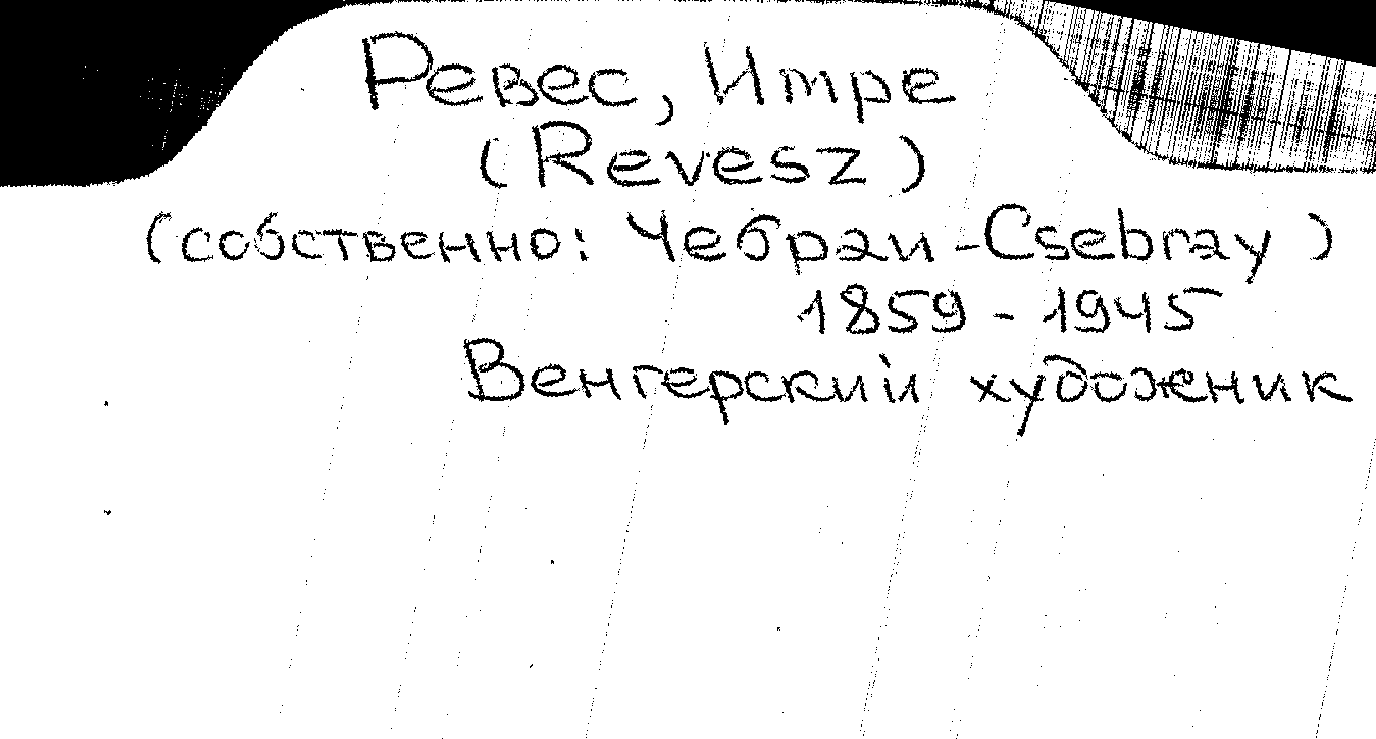 Ревес, Итре
(Revesz)
(собственно: Чебраи - Csebray)
1859 - 1945
Венгерский художник